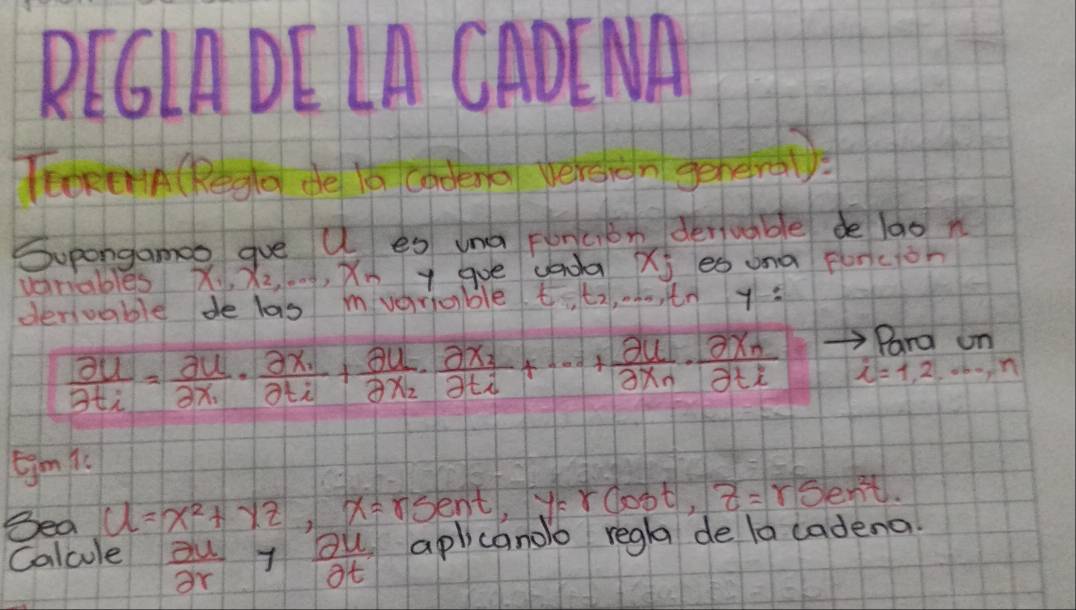 REGLA DE LA CADENA
TEOREMA (Regla de la cadena versión general):
Supongamos que U es una función derivable de las n
variables x₁, x₂, ..., xₙ y que cada xⱼ es una función
derivable de las m variable t₁, t₂, ..., tₙ y:
∂u/∂tᵢ = ∂u/∂x₁ · ∂x₁/∂tᵢ + ∂u/∂x₂ · ∂x₂/∂tᵢ + ... + ∂u/∂xₙ · ∂xₙ/∂tᵢ → Para un
i = 1, 2, ..., n
Ejm 1:
Sea U = x² + yz, x = r sent, y = r Cost, z = r Sen²t.
Calcule ∂u/∂r y ∂u/∂t aplicando regla de la cadena.